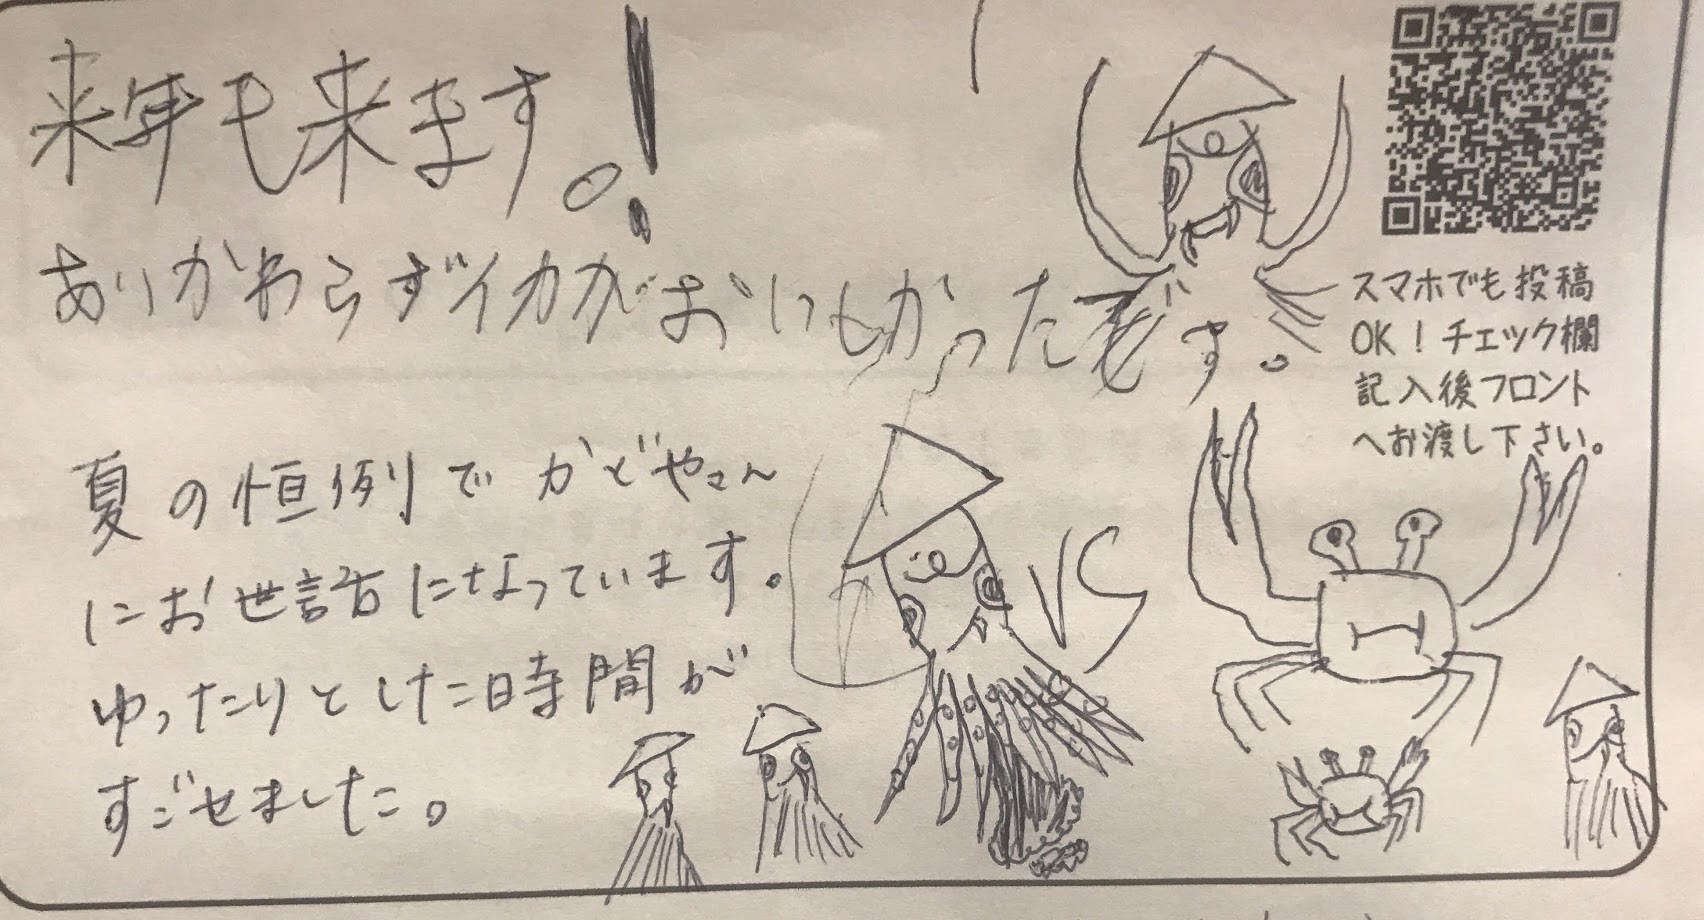 来年も来ます。!
ありかわらずイカがおいしかったです。
夏の恒例でかどやさん
にお世話になっています。
ゆったりとした時間が
すごせました。
VS
スマホでも投稿
OK!チェック欄
記入後フロント
へお渡し下さい。